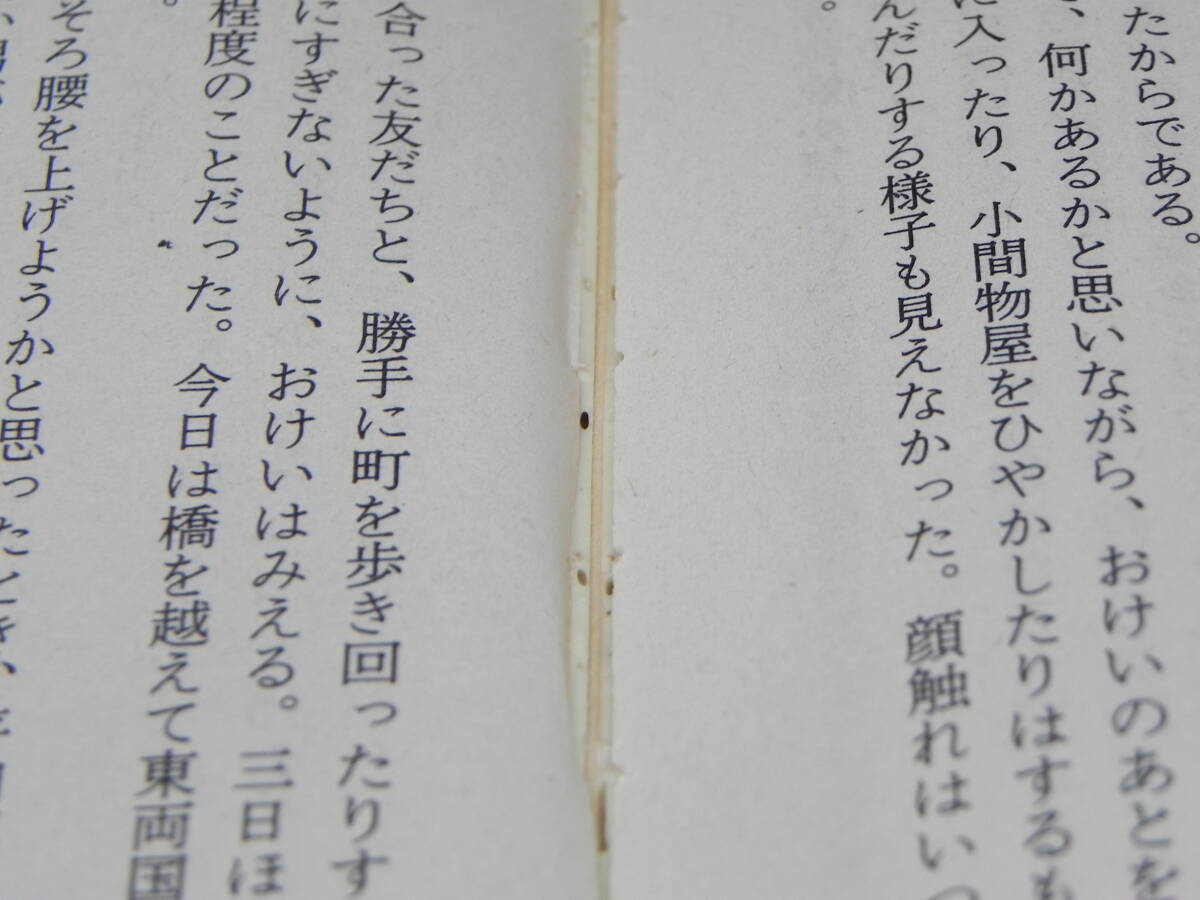 たからである。
、何かあるかと思いながら、おけいのあとを
に入ったり、小間物屋をひやかしたりはするも
んだりする様子も見えなかった。顔触れはいつ
。
合った友だちと、勝手に町を歩き回ったりす
にすぎないように、おけいはみえる。三日ほ
程度のことだった。今日は橋を越えて東両国
。
そろ腰を上げようかと思ったとき